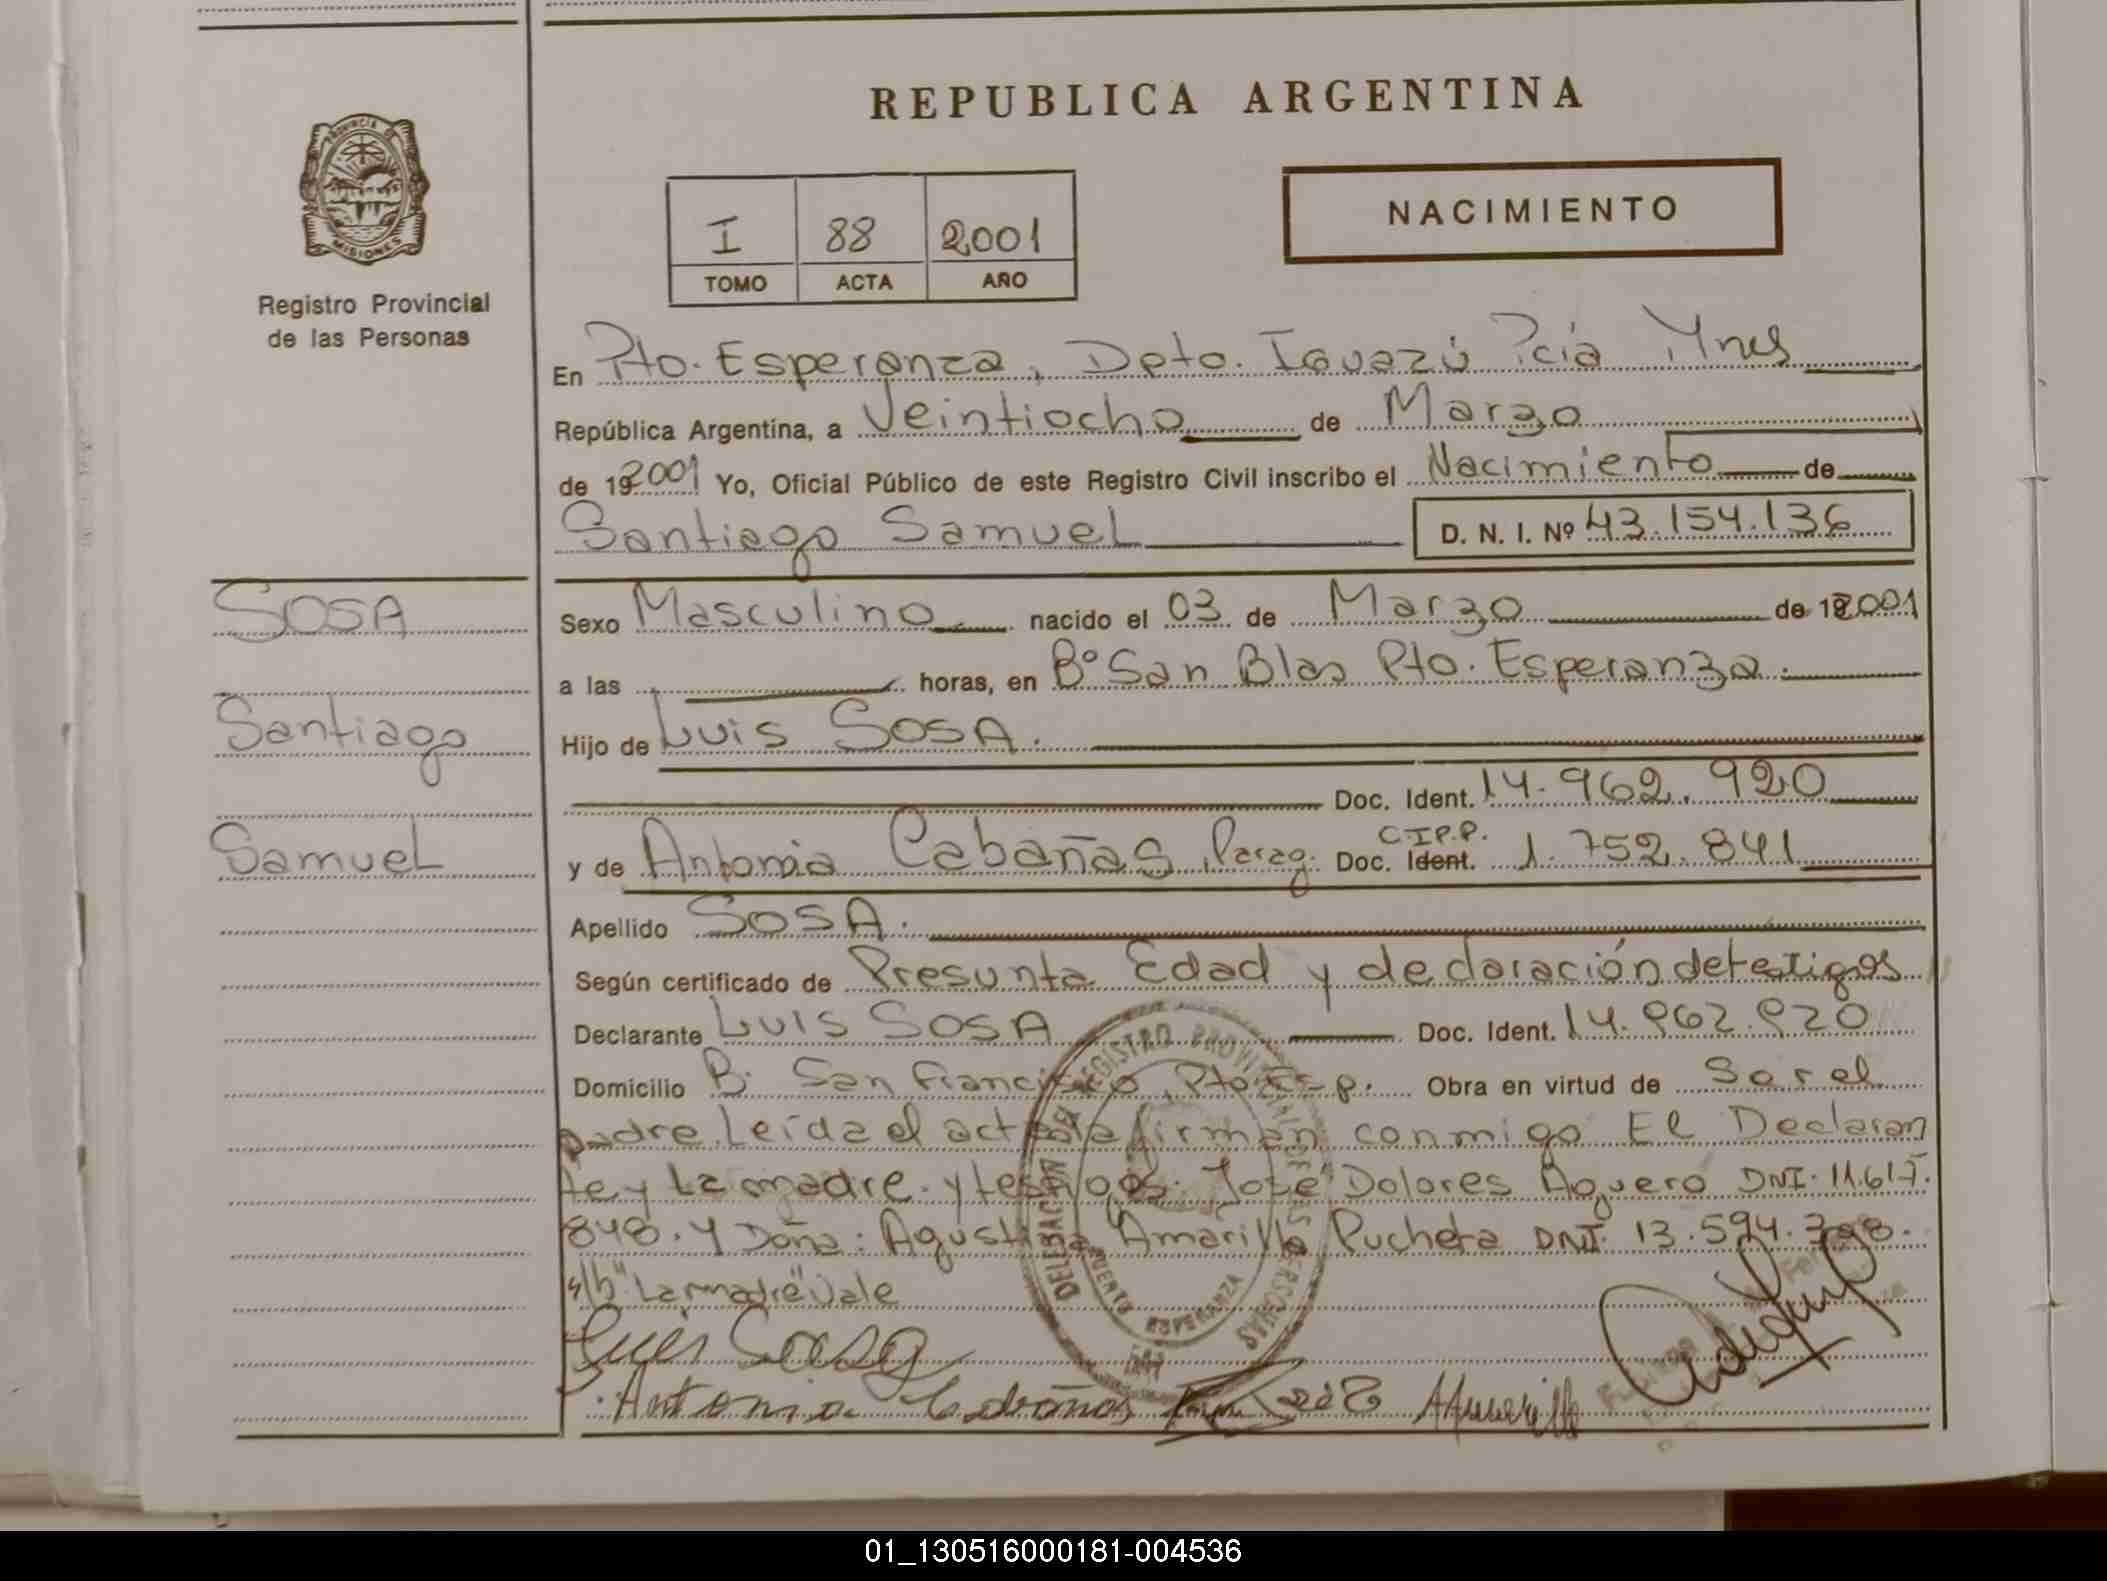 REPUBLICA ARGENTINA
PROVINCIA DE
MISIONES
Registro Provincial
de las Personas
I 88 2001
TOMO ACTA AÑO
NACIMIENTO
En Pto. Esperanza, Dpto. Iguazú Pcia Mnes
República Argentina, a Veintiocho de Marzo
de 19 2001 Yo, Oficial Público de este Registro Civil inscribo el Nacimiento de
Santiago Samuel D. N. I. Nº 43.154.136
SOSA
Santiago
Samuel
Sexo Masculino nacido el 03 de Marzo de 19 2001
a las horas, en Bº San Blas Pto. Esperanza.
Hijo de Luis SOSA.
Doc. Ident. 14.962.920
C.I.P.P.
y de Antonia Cabañas, Parag. Doc. Ident. 1.752.841
Apellido SOSA.
Según certificado de Presunta Edad y declaración de testigos
Declarante Luis SOSA Doc. Ident. 14.962.920
Domicilio B. San Francisco, Pto. Esp. Obra en virtud de Ser el
padre. Leída el acta firman conmigo El Declaran
te y La madre. y testigos. José Dolores Aguero DNI. 11.617.
848. Y Doña: Agustina Amarilla Pucheta DNI. 13.594.398.
s/b "La madre" Vale
REGISTRO PROVINCIAL DE LAS PERSONAS
DELEGACION
PUERTO ESPERANZA
Luis Sosa
Antonia Cabañas
01_130516000181-004536